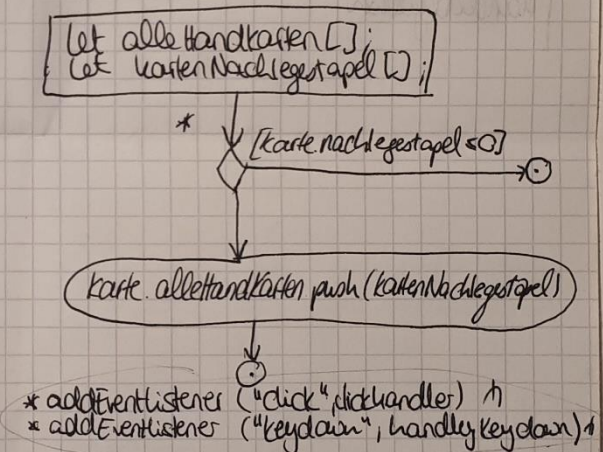 let alleHandkarten [];
let kartenNachlegestapel [];
*
[karte.nachlegestapel ≤ 0]
karte.alleHandkarten push (kartenNachlegestapel)
* addEventListener ("click", clickhandler)
* addEventListener ("keydown", handleKeydown)